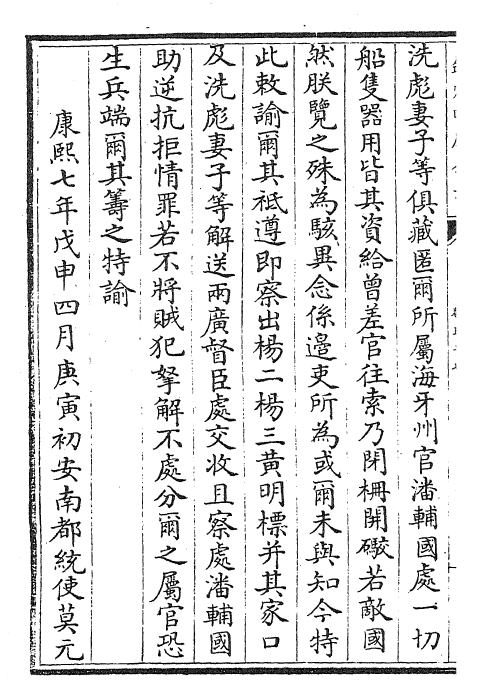 洗彪妻子等俱藏匿爾所屬海牙州官潘輔國處一切
船隻器用皆其資給曾差官往索乃閉柵開礮若敵國
然朕覽之殊為駭異念係邉吏所為或爾未與知今特
此敕諭爾其祗遵即察出楊二楊三黄明標并其家口
及洗彪妻子等解送兩廣督臣處交收且察處潘輔國
助逆抗拒情罪若不將賊犯拏解不處分爾之屬官恐
生兵端爾其籌之特諭
康熙七年戊申四月庚寅初安南都統使莫元